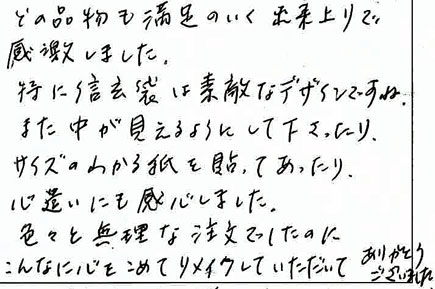 どの品物も満足のいく出来上りで
感激しました。
特に信玄袋は素敵なデザインですね。
また中が見えるようにして下さったり、
サイズのわかる紙を貼ってあったり、
心遣いにも感心しました。
色々と無理な注文でしたのに
こんなに心をこめてリメイクしていただいて ありがとう
ございました